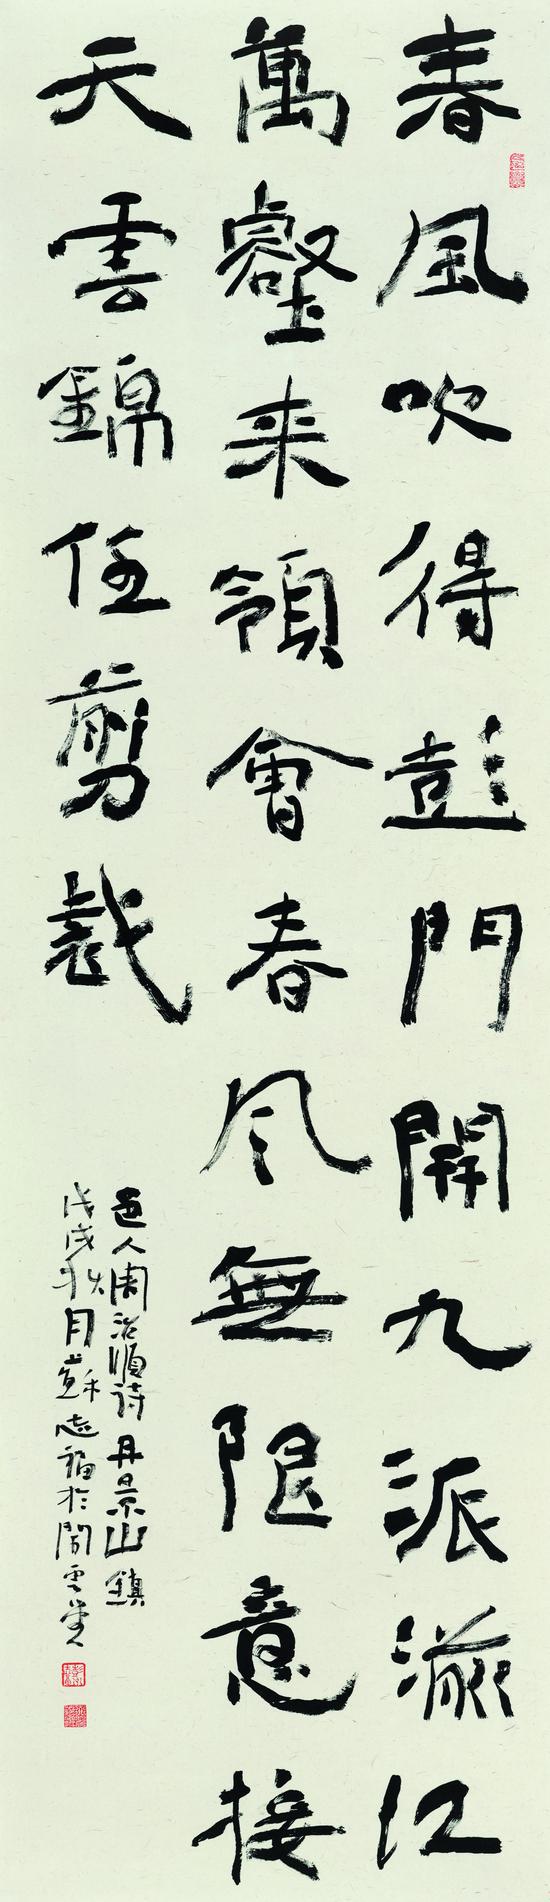 春風吹得彭門開九派湔江
萬壑来領會春风無限意接
天雲錦任剪裁
邑人周治順诗丹景山鎮
戊戌秋月蘇志福於閒雲堂